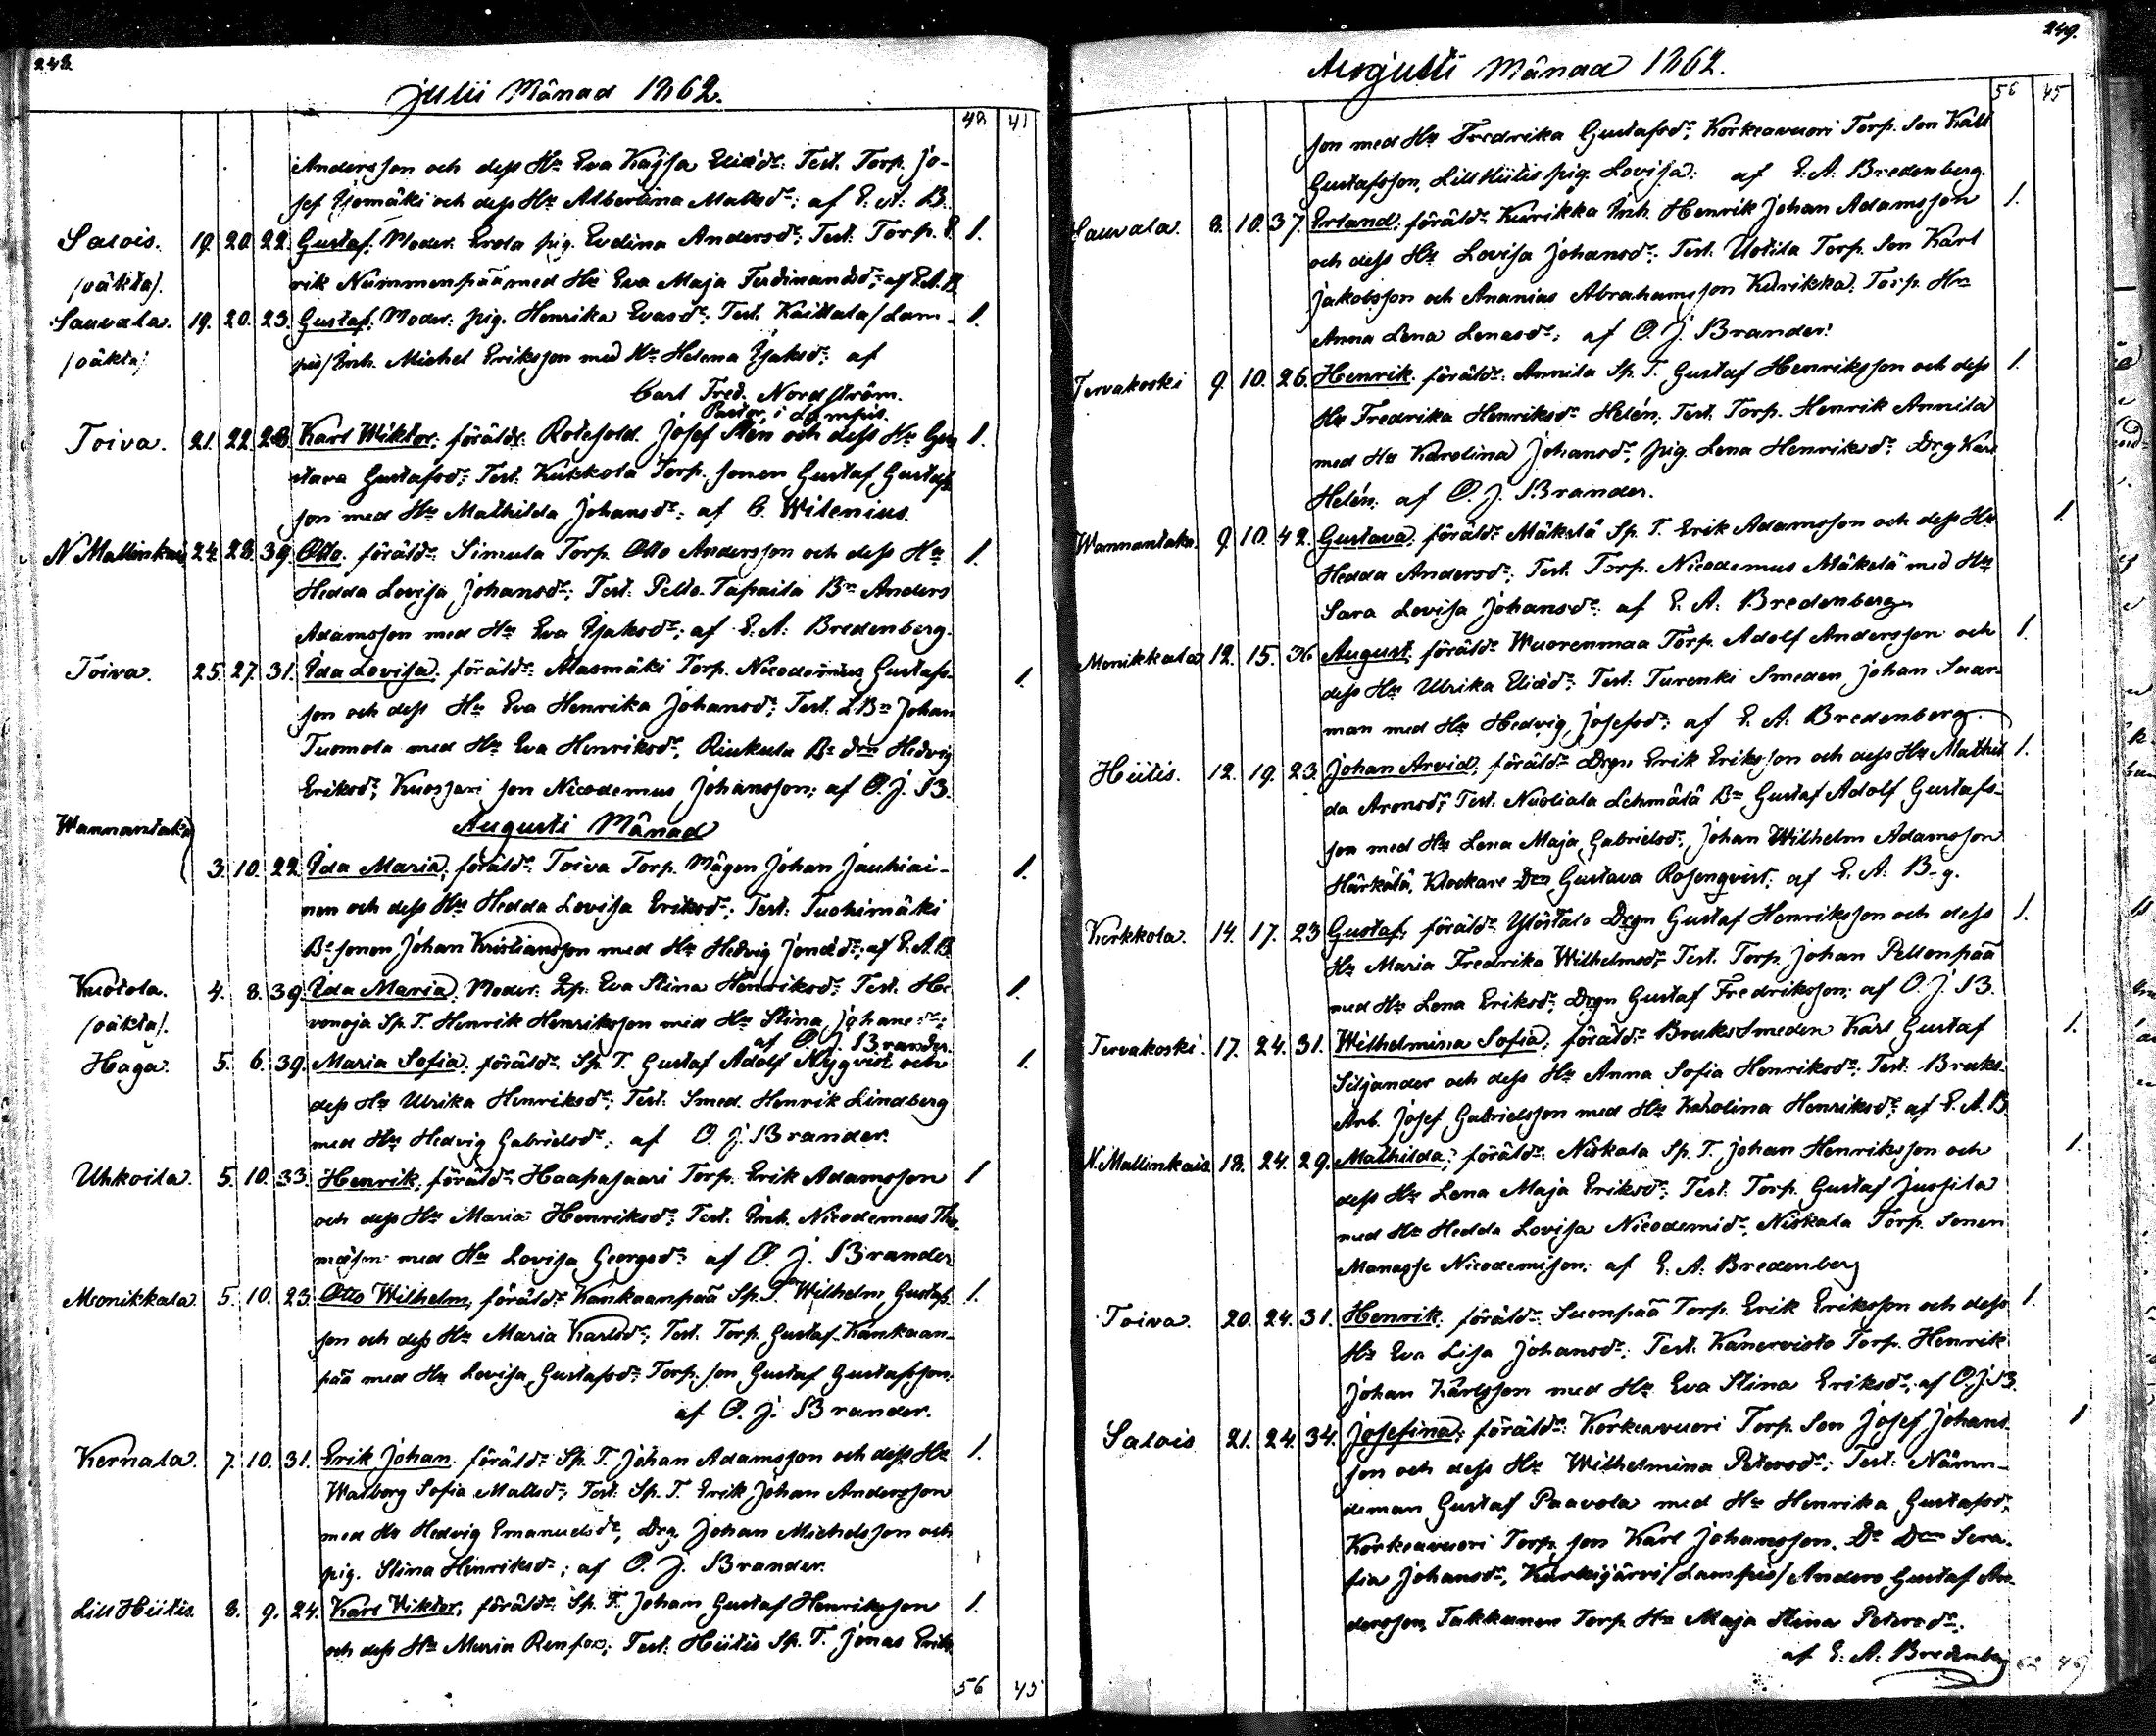 248.
Julii Månad 1862.
48 41
Andersson och dess Hu Eva Kajsa Eliædr: Test. Torp. Jo-
sef Ojomäki och dess Hu Albertina Mattsdr; af E. A. B.
Salois. 19. 20. 22. Gustaf. Moder. Erola pig. Evelina Andersdr; Test. Torp. E- 1.
(oäkta). rik Nummenpää med Hu Eva Maja Ferdinandsdr; af E. A. B.
Sauvala. 19. 20. 23. Gustaf. Moder: pig. Henrika Evasdr; Test. Kaittala (Lam- 1.
(oäkta) pis) Inh. Michel Eriksson med Hu Helena Isaksdr; af
Carl Fred. Nordström.
Pastor i Lampis.
Toiva. 21. 22. 28. Karl Wiktor; föräldr: Rotesold. Josef Sten och dess Hu Gu- 1.
stava Gustafsdr; Test. Kukkola Torp. sonen Gustaf Gustafs-
son med Hu Mathilda Johansdr; af C. Wilenius.
N. Mallinkais 24. 28. 39. Otto. föräldr: Simula Torp. Otto Andersson och dess Hu 1.
Hedda Lovisa Johansdr; Test: Pelto Tapaila Bn Anders
Adamsson med Hu Eva Isaksdr; af E. A. Bredenberg.
Toiva. 25. 27. 31. Ida Lovisa. föräldr: Alasmäki Torp. Nicodemus Gustafs- 1.
son och dess Hu Eva Henrika Johansdr; Test. L. Bn Johan
Tuomola med Hu Eva Henriksdr, Riukula Bs dm Hedvig
Eriksdr, Kuosjari son Nicodemus Johansson; af O. J. B.
Wannantaka Augusti Månad
3. 10. 22. Ida Maria; föräldr: Toiva Torp. Mågen Johan Jauhiai- 1.
nen och dess Hu Hedda Lovisa Eriksdr; Test: Tuohimäki
Bs sonen Johan Kristiansson med Hu Hedvig Jonædr; af E. A. B
Kuotola. 4. 8. 39. Ida Maria. Moder: Lp. Eva Stina Henriksdr; Test. Hi- 1.
(oäkta). vonoja Sp. T. Henrik Henriksson med Hu Stina Johansdr;
af O. J. Brander.
Haga. 5. 6. 39. Maria Sofia. föräldr: Sp. T. Gustaf Adolf Nygvist och 1.
dess Hu Ulrika Henriksdr; Test: Smed. Henrik Lindberg
med Hu Hedvig Gabrielsdr; af O. J. Brander.
Uhkoila. 5. 10. 33. Henrik, föräldr: Haapasaari Torp. Erik Adamsson 1
och dess Hu Maria Henriksdr; Test. Inh. Nicodemus Tho-
mæson med Hu Lovisa Georgsdr af O. J. Brander
Monikkala. 5. 10. 23. Otto Wilhelm, föräldr: Kankaanpää Sp. T. Wilhelm Gustafs- 1.
son och dess Hu Maria Karlsdr; Test. Torp. Gustaf Kankaan-
pää med Hu Lovisa Gustafsdr, Torp. son Gustaf Gustafsson;
af O. J. Brander.
Kernala. 7. 10. 31. Erik Johan. föräldr: Sp. T. Johan Adamsson och dess Hu 1.
Walborg Sofia Mattsdr; Test. Sp. T. Erik Johan Andersson
med Hu Hedvig Emanuelsdr, Drg. Johan Michelsson och
pig. Stina Henriksdr; af O. J. Brander.
Lill Hiitis. 8. 9. 24. Karl Viktor; föräldr: Sp. T. Johan Gustaf Henriksson 1.
och dess Hu Maria Renfors; Test. Hiitis Sp. T. Jonas Eriks-
56 45
249.
Augusti Månad 1862.
56 45
son med Hu Fredrika Gustafsdr, Korkeavuori Torp. Son Karl
Gustafsson, Lill Hiitis pig. Lovisa; af E. A. Bredenberg.
Sauvala. 8. 10. 37. Erland; föräldr: Kurikka Inh. Henrik Johan Adamsson 1.
och dess Hu Lovisa Johansdr; Test: Uotila Torp. Son Karl
Jakobsson och Ananias Abrahamsson Kurikka. Torp. Hu
Anna Lena Lenasdr; af O. J. Brander.
Tervakoski 9. 10. 26. Henrik. föräldr: Annila Sp. T. Gustaf Henriksson och dess 1.
Hu Fredrika Henriksdr Helén; Test. Torp. Henrik Annila
med Hu Karolina Johansdr, pig. Lena Henriksdr Drg Karl
Helén; af O. J. Brander.
Wannantaka. 9. 10. 42. Gustava. föräldr: Mäkelä Sp. T. Erik Adamsson och dess Hu 1.
Hedda Andersdr; Test. Torp. Nicodemus Mäkelä med Hu
Sara Lovisa Johansdr; af E. A. Bredenberg
Monikkala. 12. 15. 36. August; föräldr: Wuorenmaa Torp. Adolf Andersson och 1.
dess Hu Ulrika Eliædr; Test: Turenki Smeden Johan Saar-
man med Hu Hedvig Josefsdr; af E. A. Bredenberg.
Hiitis. 12. 19. 23. Johan Arvid; föräldr: Drgn Erik Eriksson och dess Hu Mathil- 1.
da Aronsdr; Test. Nuoliala Lehmälä Bn Gustaf Adolf Gustafs-
son med Hu Lena Maja Gabrielsdr, Johan Wilhelm Adamsson
Härkälä, Klockare Dm Gustava Rosenqvist; af E. A. B-g.
Kerkkola. 14. 17. 23. Gustaf; föräldr: Ylöstalo Drgn Gustaf Henriksson och dess 1.
Hu Maria Fredrika Wilhelmsdr; Test. Torp. Johan Pellonpää
med Hu Lena Eriksdr, Drgn Gustaf Fredriksson; af O. J. B.
Tervakoski. 17. 24. 31. Wilhelmina Sofia. föräldr: BruksSmeden Karl Gustaf 1.
Siljander och dess Hu Anna Sofia Henriksdr; Test: Bruks-
Arb. Josef Gabrielsson med Hu Karolina Henriksdr; af E. A. B
N. Mallinkais. 18. 24. 29. Mathilda; föräldr: Niskala Sp. T. Johan Henriksson och 1.
dess Hu Lena Maja Eriksdr; Test. Torp. Gustaf Jussila
med Hu Hedda Lovisa Nicodemidr, Niskala Torp. Sonen
Manasse Nicodemison; af E. A. Bredenberg
Toiva. 20. 24. 31. Henrik. föräldr: Suonpää Torp. Erik Eriksson och dess 1.
Hu Eva Lisa Johansdr; Test. Kanervisto Torp. Henrik
Johan Karlsson med Hu Eva Stina Eriksdr; af O. J. B.
Salois 21. 24. 34. Josefina; föräldr: Korkeavuori Torp. Son Josef Johans- 1
son och dess Hu Wilhelmina Petersdr; Test: Nämn-
deman Gustaf Paavola med Hu Henrika Gustafsdr,
Korkeavuori Torp. son Karl Johansson, Do Dm Sera-
fia Johansdr, Kurkijärvi (Lampis) Anders Gustaf An-
dersson, Takkanen Torp. Hu Maja Stina Petersdr;
af E. A. Bredenberg